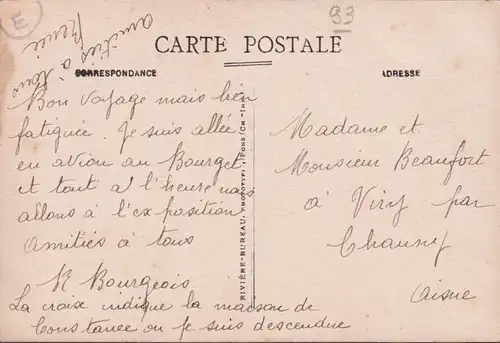 E
93
amitiés à tous
Renée
CARTE POSTALE
CORRESPONDANCE
ADRESSE
Bon voyage mais bien
fatiguée. Je suis allée
en avion au Bourget
et tout a l'heure nous
allons à l'exposition
amitiés à tous
R Bourgeois
La croix indique la maison de
Constance ou je suis descendue
RIVIÈRE-BUREAU, PHOTOTYPI, PONS (CH-INF)
Madame et
Monsieur Beaufort
à Viry par
Chauny
Aisne